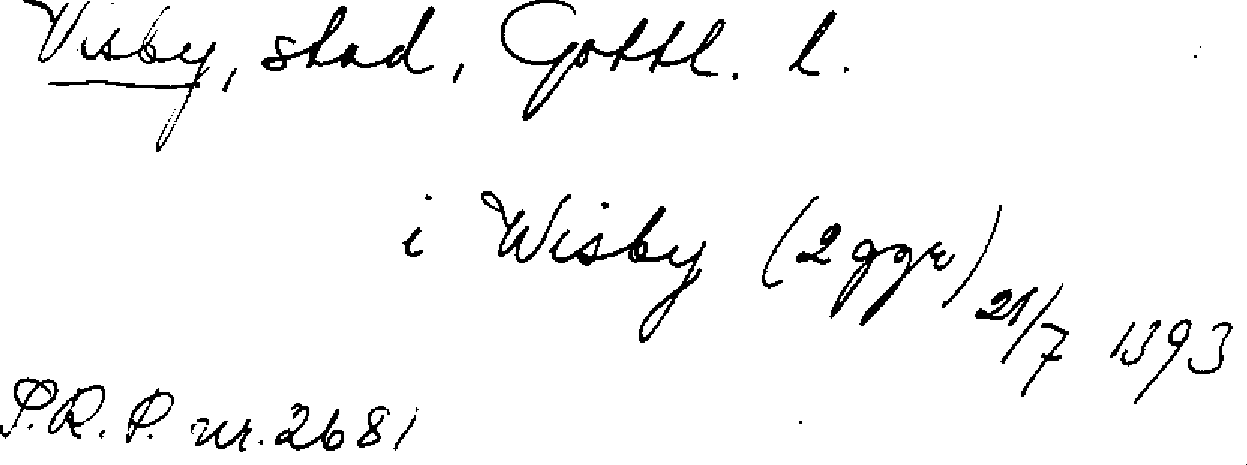 Visby, stad, Gottl. l.
i Wisby (2 ggr) 21/7 1393
P.R.P. nr. 2681